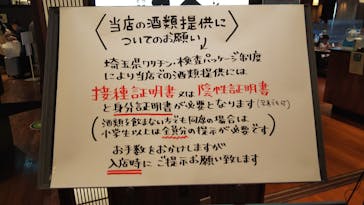 当店の酒類提供に
ついてのお願い
埼玉県ワクチン・検査パッケージ制度
により当店での酒類提供には
接種証明書又は陰性証明書
と身分証明書が必要となります
(酒類を飲まない方でも同席の場合は
小学生以上は全員分の提示が必要です)
お手数をおかけしますが
入店時にご提示お願い致します